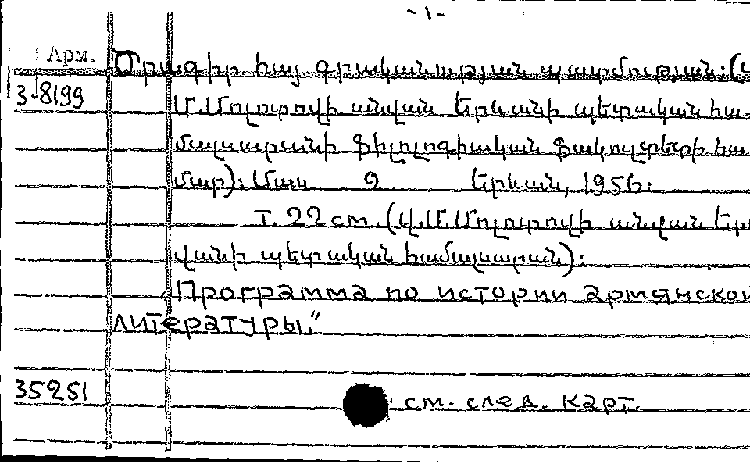 - 1 -
Арм. Ծրագիր հայ գրականության պատմության: (Վ.
3-8199 Մ. Մոլոտովի անվան Երևանի պետական հա-
մալսարանի ֆիլոլոգիական ֆակուլտետի հա-
մար): Մաս 2 Երևան, 1956:
т. 22 см. (Վ. Մ. Մոլոտովի անվան Երե
վանի պետական համալսարան):
"Программа по истории армянской
литературы."
35251 см. след. карт.